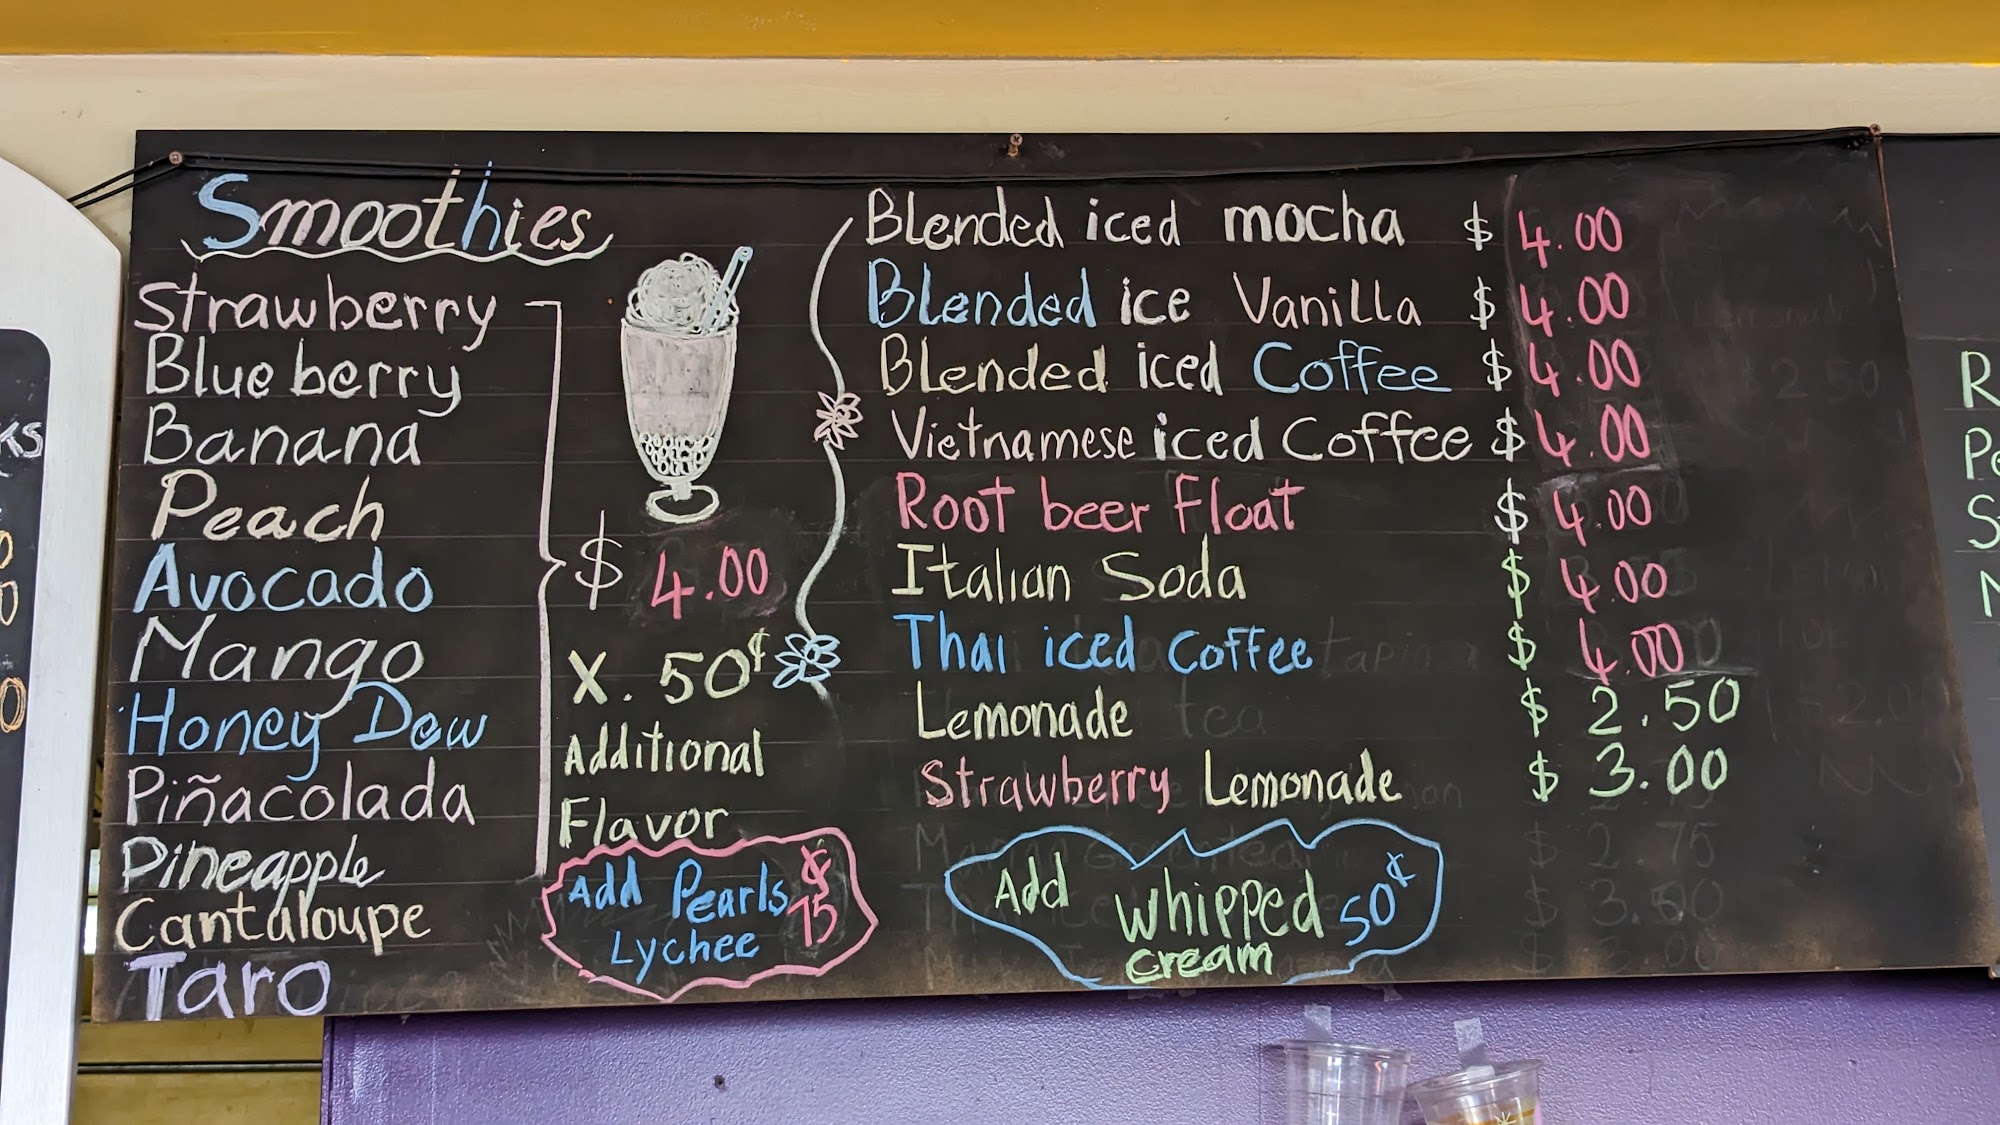 Smoothies
Strawberry
Blueberry
Banana
Peach
Avocado
Mango
Honey Dew
Piñacolada
Pineapple
Cantaloupe
Taro
$ 4.00
X .50¢
Additional
Flavor
Add Pearls ¢75
Lychee
Blended iced mocha $ 4.00
Blended ice Vanilla $ 4.00
Blended iced Coffee $ 4.00
Vietnamese iced Coffee $ 4.00
Root beer Float $ 4.00
Italian Soda $ 4.00
Thai iced Coffee $ 4.00
Lemonade $ 2.50
Strawberry Lemonade $ 3.00
Add whipped 50¢
cream